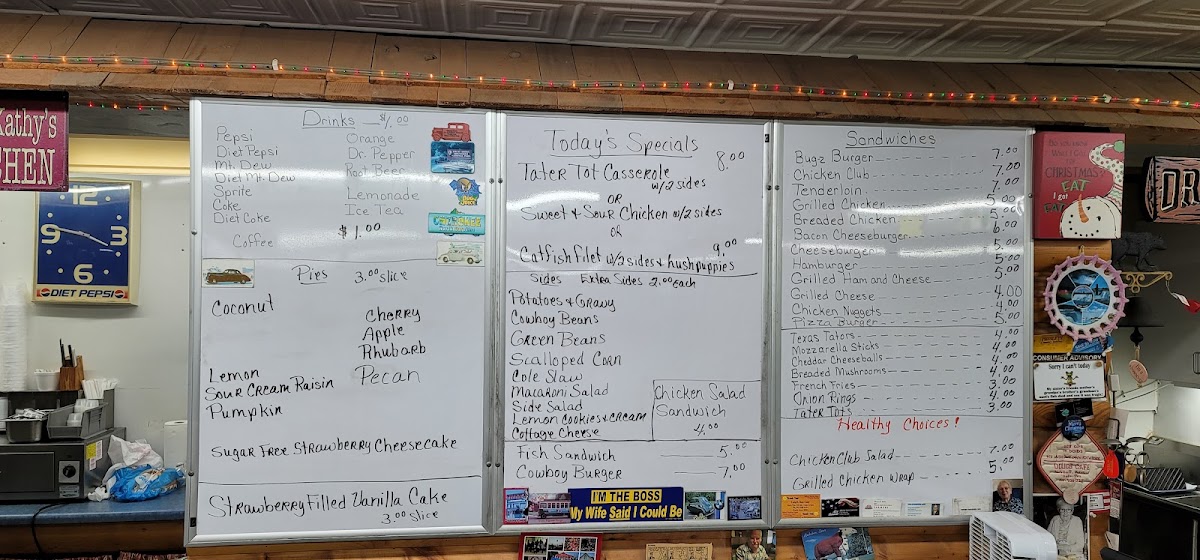 Kathy's
CHEN
12
9 3
6
DIET PEPSI
Drinks $1.00
Pepsi
Diet Pepsi
Mt. Dew
Diet Mt. Dew
Sprite
Coke
Diet Coke
Coffee
Orange
Dr. Pepper
Root Beer
Lemonade
Ice Tea
$1.00
Pies 3.00 slice
Coconut
Cherry
Apple
Rhubarb
Lemon
Pecan
Sour Cream Raisin
Pumpkin
Sugar Free Strawberry Cheesecake
Strawberry Filled Vanilla Cake
3.00 slice
Today's Specials
Tater Tot Casserole 8.00
w/2 sides
OR
Sweet & Sour Chicken w/2 sides
OR
9.00
Catfish Filet w/2 sides & hushpuppies
Sides Extra Sides 2.00 each
Potatoes & Gravy
Cowboy Beans
Green Beans
Scalloped Corn
Cole Slaw
Macaroni Salad
Side Salad
Lemon Cookies & Cream
Cottage Cheese
Chicken Salad
Sandwich
4.00
Fish Sandwich 5.00
Cowboy Burger 7.00
I'M THE BOSS
My Wife Said I Could Be
Sandwiches
Bugz Burger 7.00
Chicken Club 7.00
Tenderloin 7.00
Grilled Chicken 5.00
Breaded Chicken 5.00
Bacon Cheeseburger 6.00
Cheeseburger 5.00
Hamburger 5.00
Grilled Ham and Cheese 5.00
Grilled Cheese 4.00
Chicken Nuggets 4.00
Pizza Burger 5.00
Texas Tators 4.00
Mozzarella Sticks 4.00
Cheddar Cheeseballs 4.00
Breaded Mushrooms 4.00
French Fries 3.00
Onion Rings 4.00
Tater Tots 3.00
Healthy Choices!
Chicken Club Salad 7.00
Grilled Chicken Wrap 5.00
CHRISTMAS?
EAT
I got
FAT
DR
CONSUMER ADVISORY
Sorry I can't today